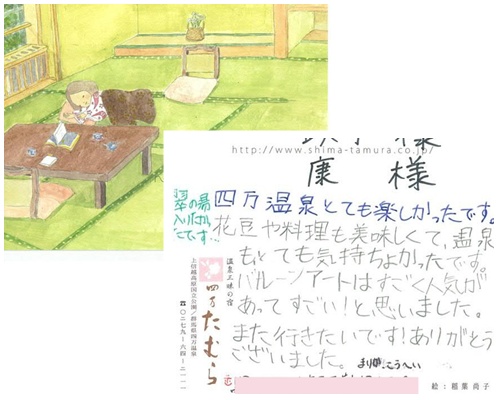 http://www.shima-tamura.co.jp/
康 様
四万温泉とても楽しかったです。
花豆や料理も美味しくて、温泉
もとても気持ちよかったです。
バルーンアートはすごく人気が
あってすごい!と思いました。
また行きたいです!ありがとう
ございました。
温泉三昧の宿
四万たむら
上信越高原国立公園/群馬県四万温泉
☎〇二七九-六四-二一一一
絵:稲葉尚子